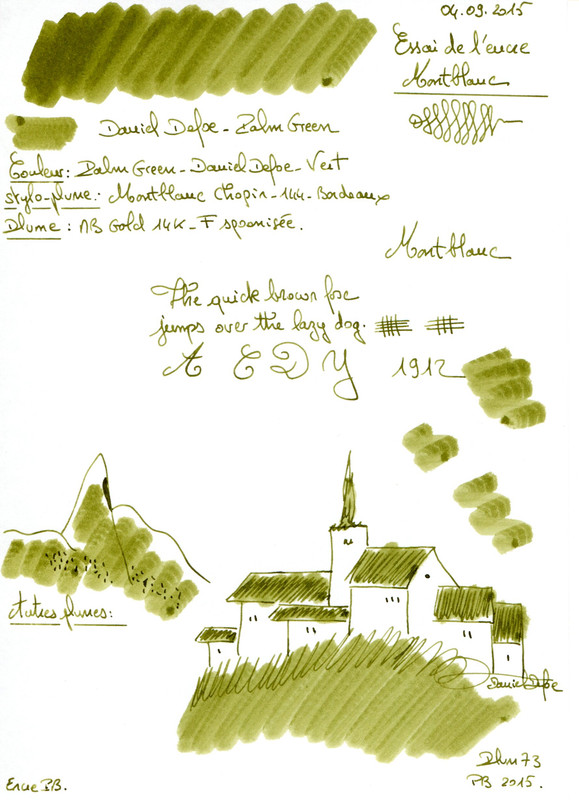 04.09.2015
Essai de l'encre
Montblanc
Daniel Defoe - Palm Green
Couleur: Palm Green - Daniel Defoe - Vert
Stylo-plume: Montblanc Chopin - 144 - Bordeaux
Plume: MB Gold 14K - F
Montblanc
The quick brown fox
jumps over the lazy dog.
A E D Y 1912
Autres plumes:
Daniel Defoe
73
PB 2015.
Encre